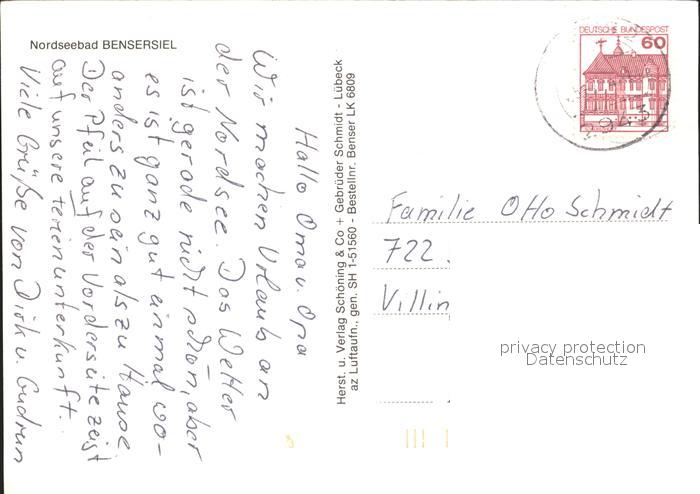 Nordseebad BENSERSIEL
Hallo Oma u. Opa
Wir machen Urlaub an
der Nordsee. Das Wetter
ist gerade nicht schön, aber
es ist ganz gut einmal wo-
anders zu sein als zu Hause.
Der Pfeil auf der Vorderseite zeigt
auf unsere Ferienunterkunft.
Viele Grüße von Dirk u. Gudrun
Herst. u. Verlag Schöning & Co + Gebrüder Schmidt - Lübeck
az Luftaufn., gen. SH 1-51560 - Bestellnr. Benser LK 6809
DEUTSCHE BUNDESPOST
60
Familie Otto Schmidt
722.
Villin
privacy protection
Datenschutz